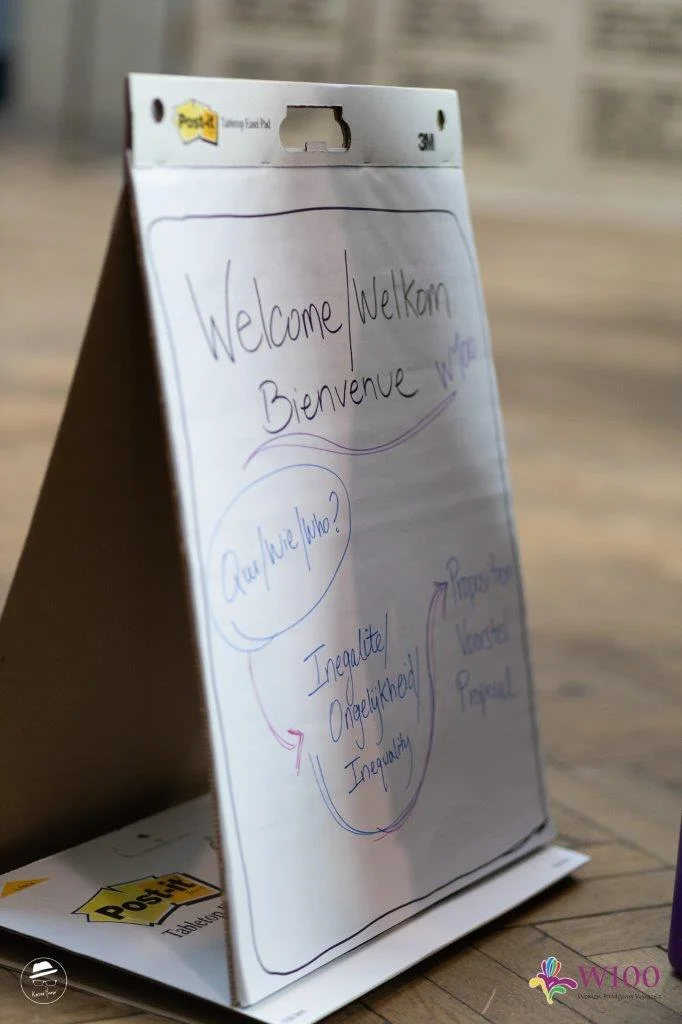 Post-it Tabletop Easel Pad
3M
Welcome/Welkom
Bienvenue W100
Qui/Wie/Who?
Inegalite/
Ongelijkheid/
Inequality
Proposition
Voorstel
Proposal
Post-it
Tabletop
W100
Women Bridging Worlds